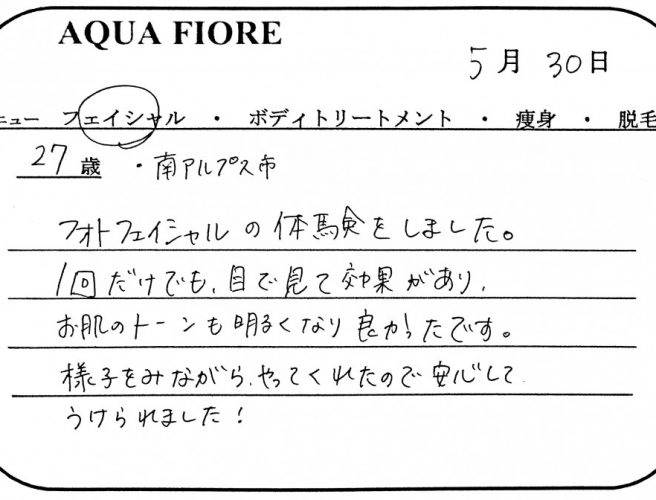 AQUA FIORE
5月 30日
ニュー フェイシャル ・ ボディトリートメント ・ 痩身 ・ 脱毛
27歳 ・南アルプス市
フォトフェイシャルの体験をしました。
1回だけでも、目で見て効果があり、
お肌のトーンも明るくなり良かったです。
様子をみながら、やってくれたので安心して
うけられました!